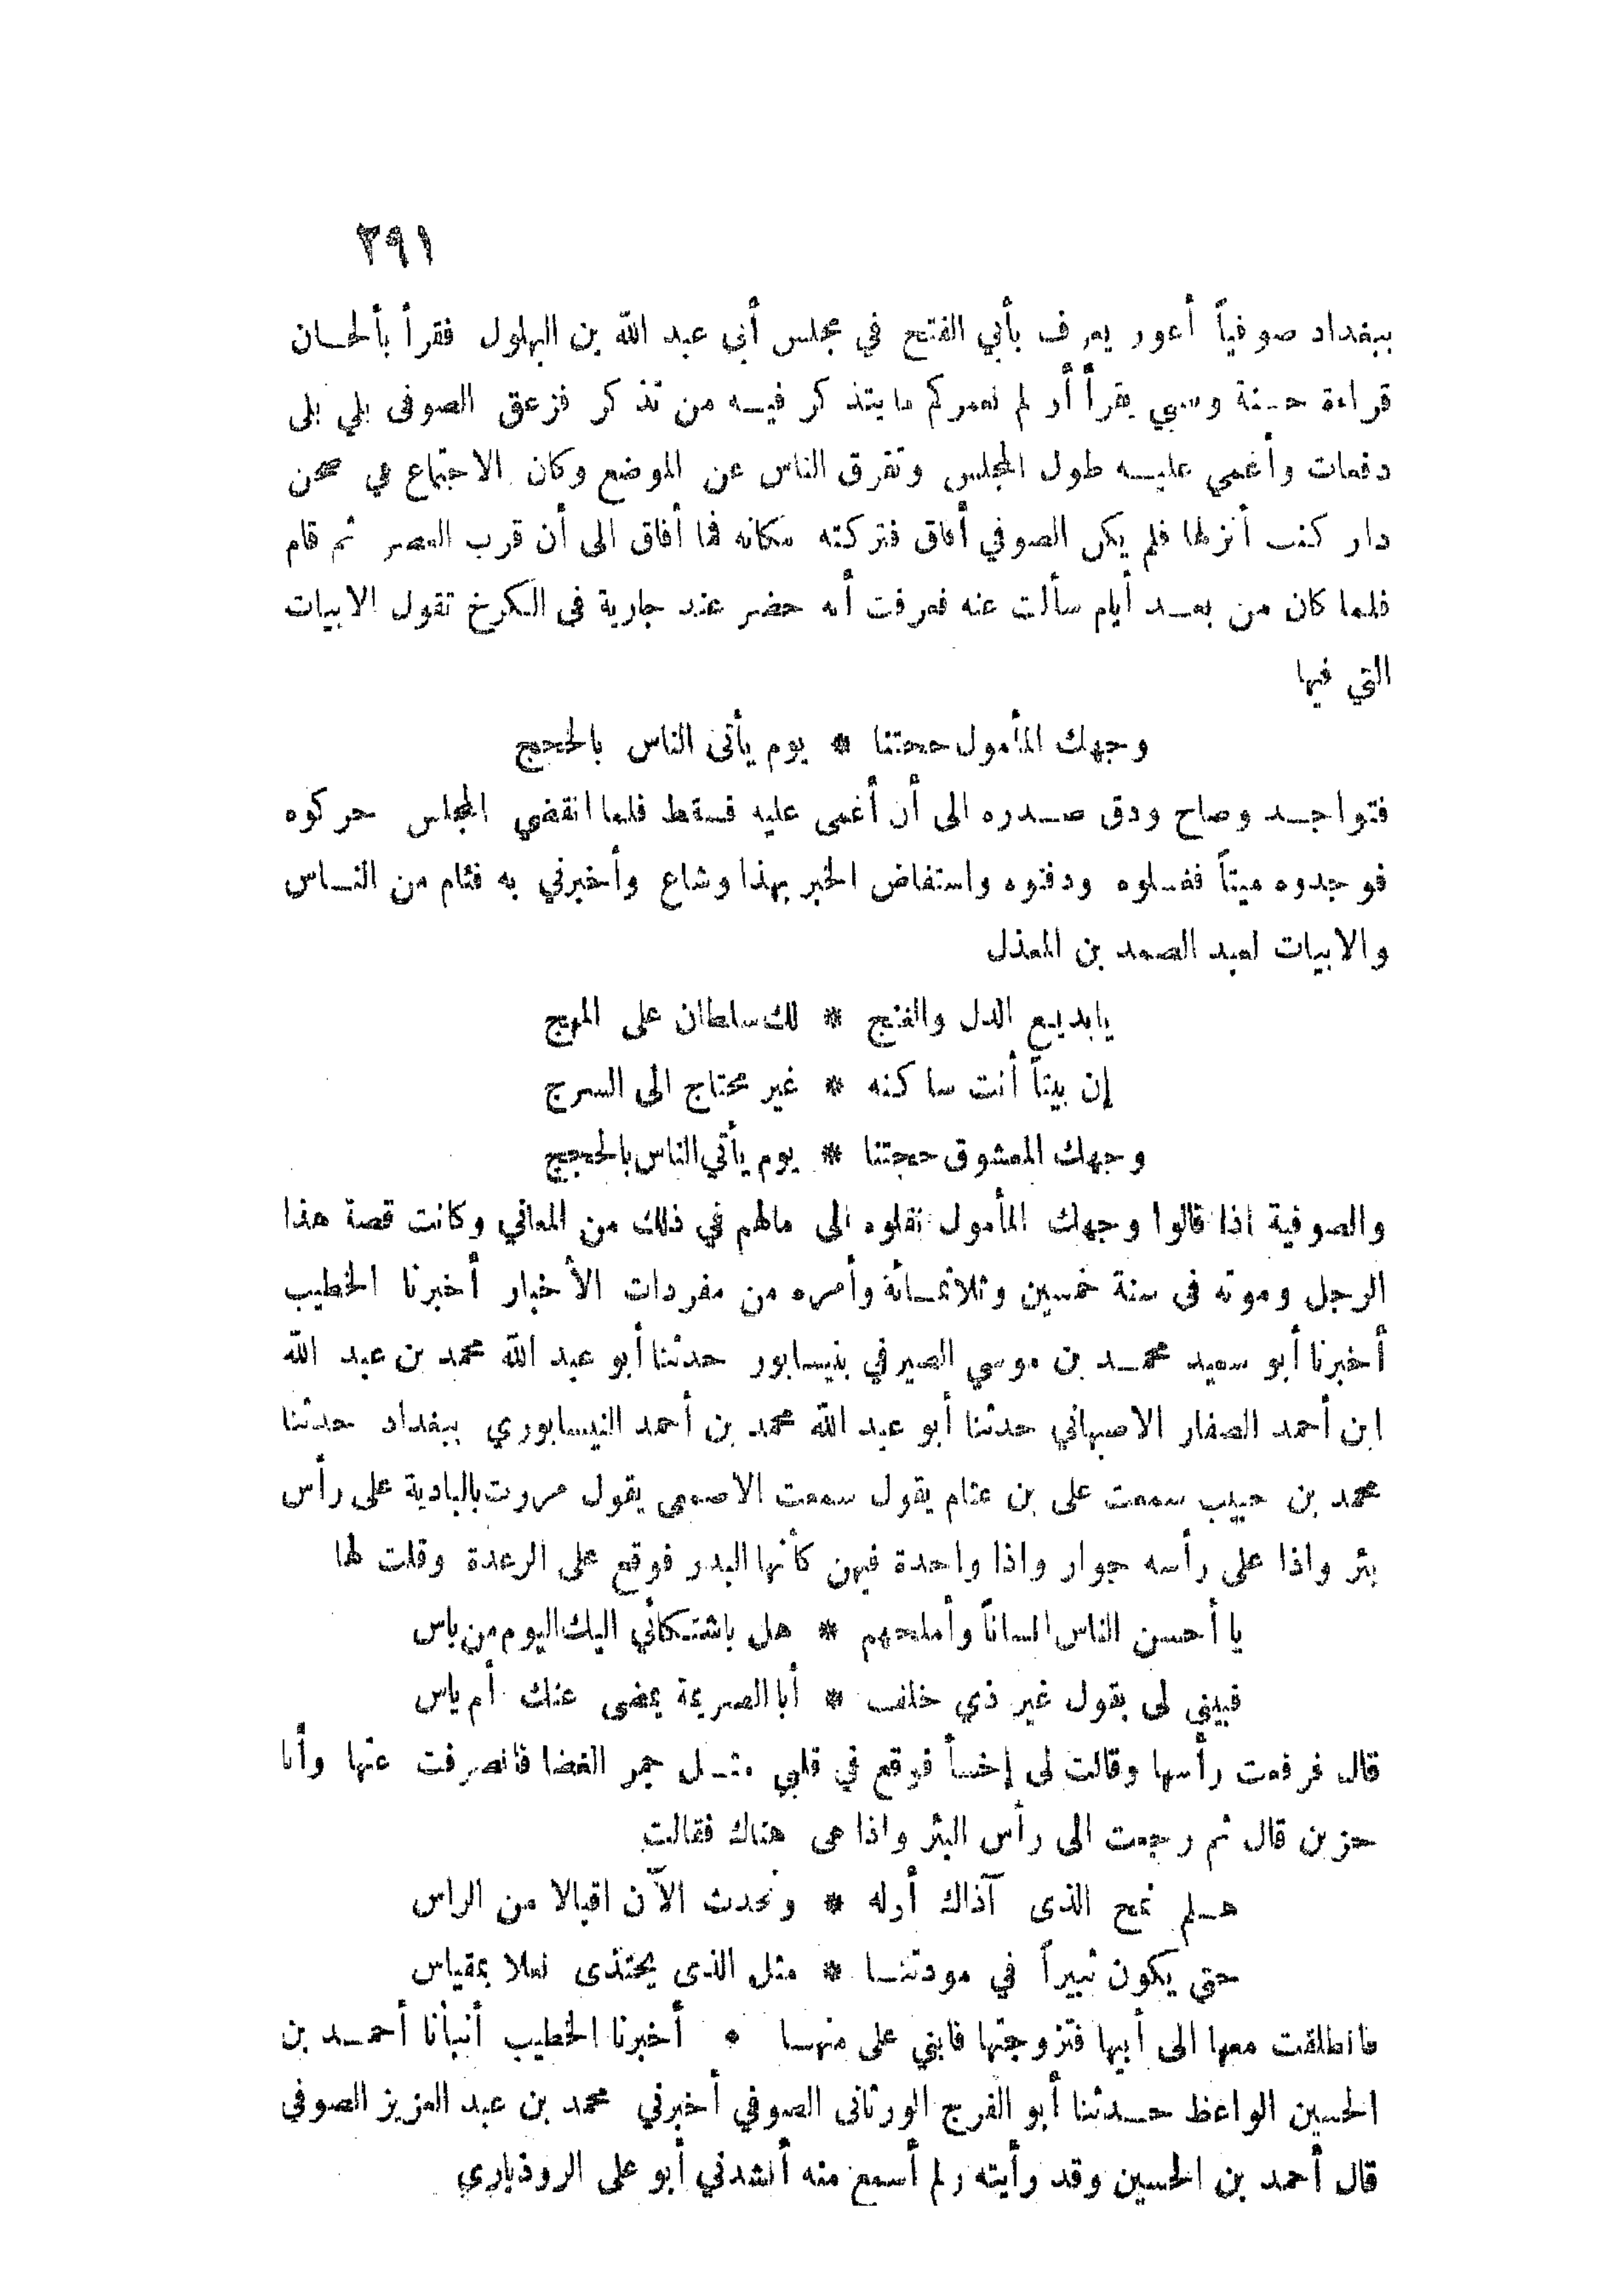 ٣٩١
ببغداد صوفياً أعور يعرف بأبي الفتح في مجلس أبي عبد الله بن البهلول فقرأ بألحان
قراءة حسنة وصبي يقرأ أو لم نعمركم ما يتذكر فيه من تذكر فزعق الصوفى بلي بلى
دفعات وأغمي عليه طول المجلس وتفرق الناس عن الموضع وكان الاجتماع في صحن
دار كنت أنزلها فلم يكن الصوفي أفاق فتركته مكانه فما أفاق الى أن قرب العصر ثم قام
فلما كان من بعد أيام سألت عنه فعرفت أنه حضر عند جارية فى الكرخ تقول الابيات
التي فيها
وجهك المأمول حجتنا * يوم يأتى الناس بالحجج
فتواجد وصاح ودق صدره الى أن أغمى عليه فسقط فلما انقضي المجلس حركوه
فوجدوه ميتاً فغسلوه ودفنوه واستفاض الخبر بهذا وشاع وأخبرني به فئام من الناس
والابيات لعبد الصمد بن المعذل
يابديع الدل والغنج * لك سلطان على المهج
إن بيتاً أنت ساكنه * غير محتاج الى السرج
وجهك المعشوق حجتنا * يوم يأتي الناس بالحجج
والصوفية اذا قالوا وجهك المأمول نقلوه الى مالهم في ذلك من المعاني وكانت قصة هذا
الرجل وموته فى سنة خمسين وثلاثمائة وأمره من مفردات الأخبار أخبرنا الخطيب
أخبرنا أبو سعيد محمد بن موسي الصيرفي بنيسابور حدثنا أبو عبد الله محمد بن عبد الله
ابن أحمد الصفار الاصبهاني حدثنا أبو عبد الله محمد بن أحمد النيسابوري ببغداد حدثنا
محمد بن حبيب سمعت على بن عثام يقول سمعت الاصمعى يقول مررت بالبادية على رأس
بئر واذا على رأسه جوار واذا واحدة فيهن كأنها البدر فوقع على الرعدة وقلت لها
يا أحسن الناس انساناً وأملحهم * هل باشتكائي اليك اليوم من باس
فبيني لى بقول غير ذي خلف * أبا الصريمة يمضى عنك أم ياس
قال فرفعت رأسها وقالت لى إخسأ فوقع في قلبي مثل جمر الغضا فانصرفت عنها وأنا
حزين قال ثم رجعت الى رأس البئر واذا هى هناك فقالت
هلم نمح الذى آذاك أوله * ونحدث الآن اقبالا من الراس
حتي يكون ثبيراً في مودتنا * مثل الذى يحتذى نعلا بمقياس
فانطلقت معها الى أبيها فتزوجتها فابني على منها * أخبرنا الخطيب أنبأنا أحمد بن
الحسين الواعظ حدثنا أبو الفرج الورثانى الصوفي أخبرني محمد بن عبد العزيز الصوفى
قال أحمد بن الحسين وقد رأيته ولم أسمع منه أنشدني أبو على الروذباري